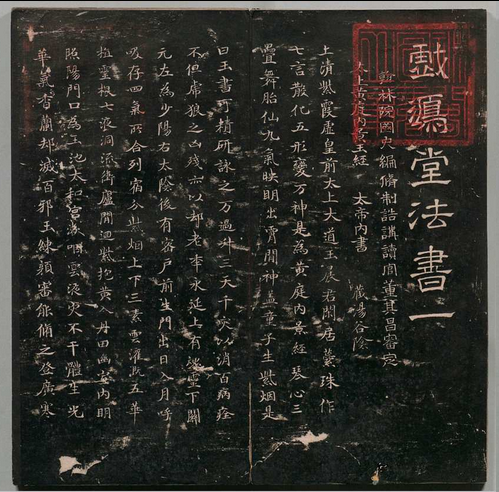 戲鴻堂法書一
翰林院國史編脩制誥講讀官董其昌審定
太上黃庭內景玉經 太帝內書 藏暘谷陰
上清紫霞虛皇前太上大道玉晨君閑居蕊珠作
七言散化五形變萬神是為黃庭內景經琴心三
疊舞胎仙九氣映明出霄間神蓋童子生紫烟是
曰玉書可精研詠之万過昇三天千灾以消百病痊
不但席狼之凶殘亦以却老年永延上有魂靈下關
元左為少陽右太陰後有密戶前生門出日入月呼
吸存四氣所合列宿分紫烟上下三素雲灌溉五華
植靈根七液洞流衝廬間迴紫抱黃入丹田幽室內明
照陽門口為玉池太和宮漱咽靈液灾不干體生光
華氣香蘭却滅百邪玉練顏審能脩之登廣寒